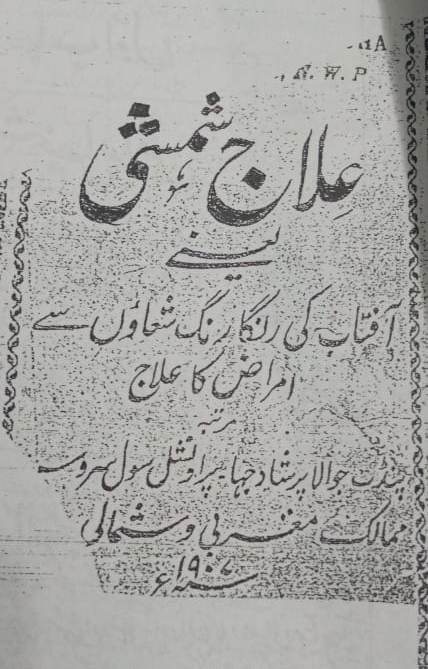 N. W. P
علاج شمسی
یعنے
آفتاب کی رنگا رنگ شعاؤں سے
امراض کا علاج
مرتبہ
پنڈت جوالا پرشاد جہا پراونشل سول سروس
ممالک مغربی و شمالی
سنہ ۱۹۰۷ء